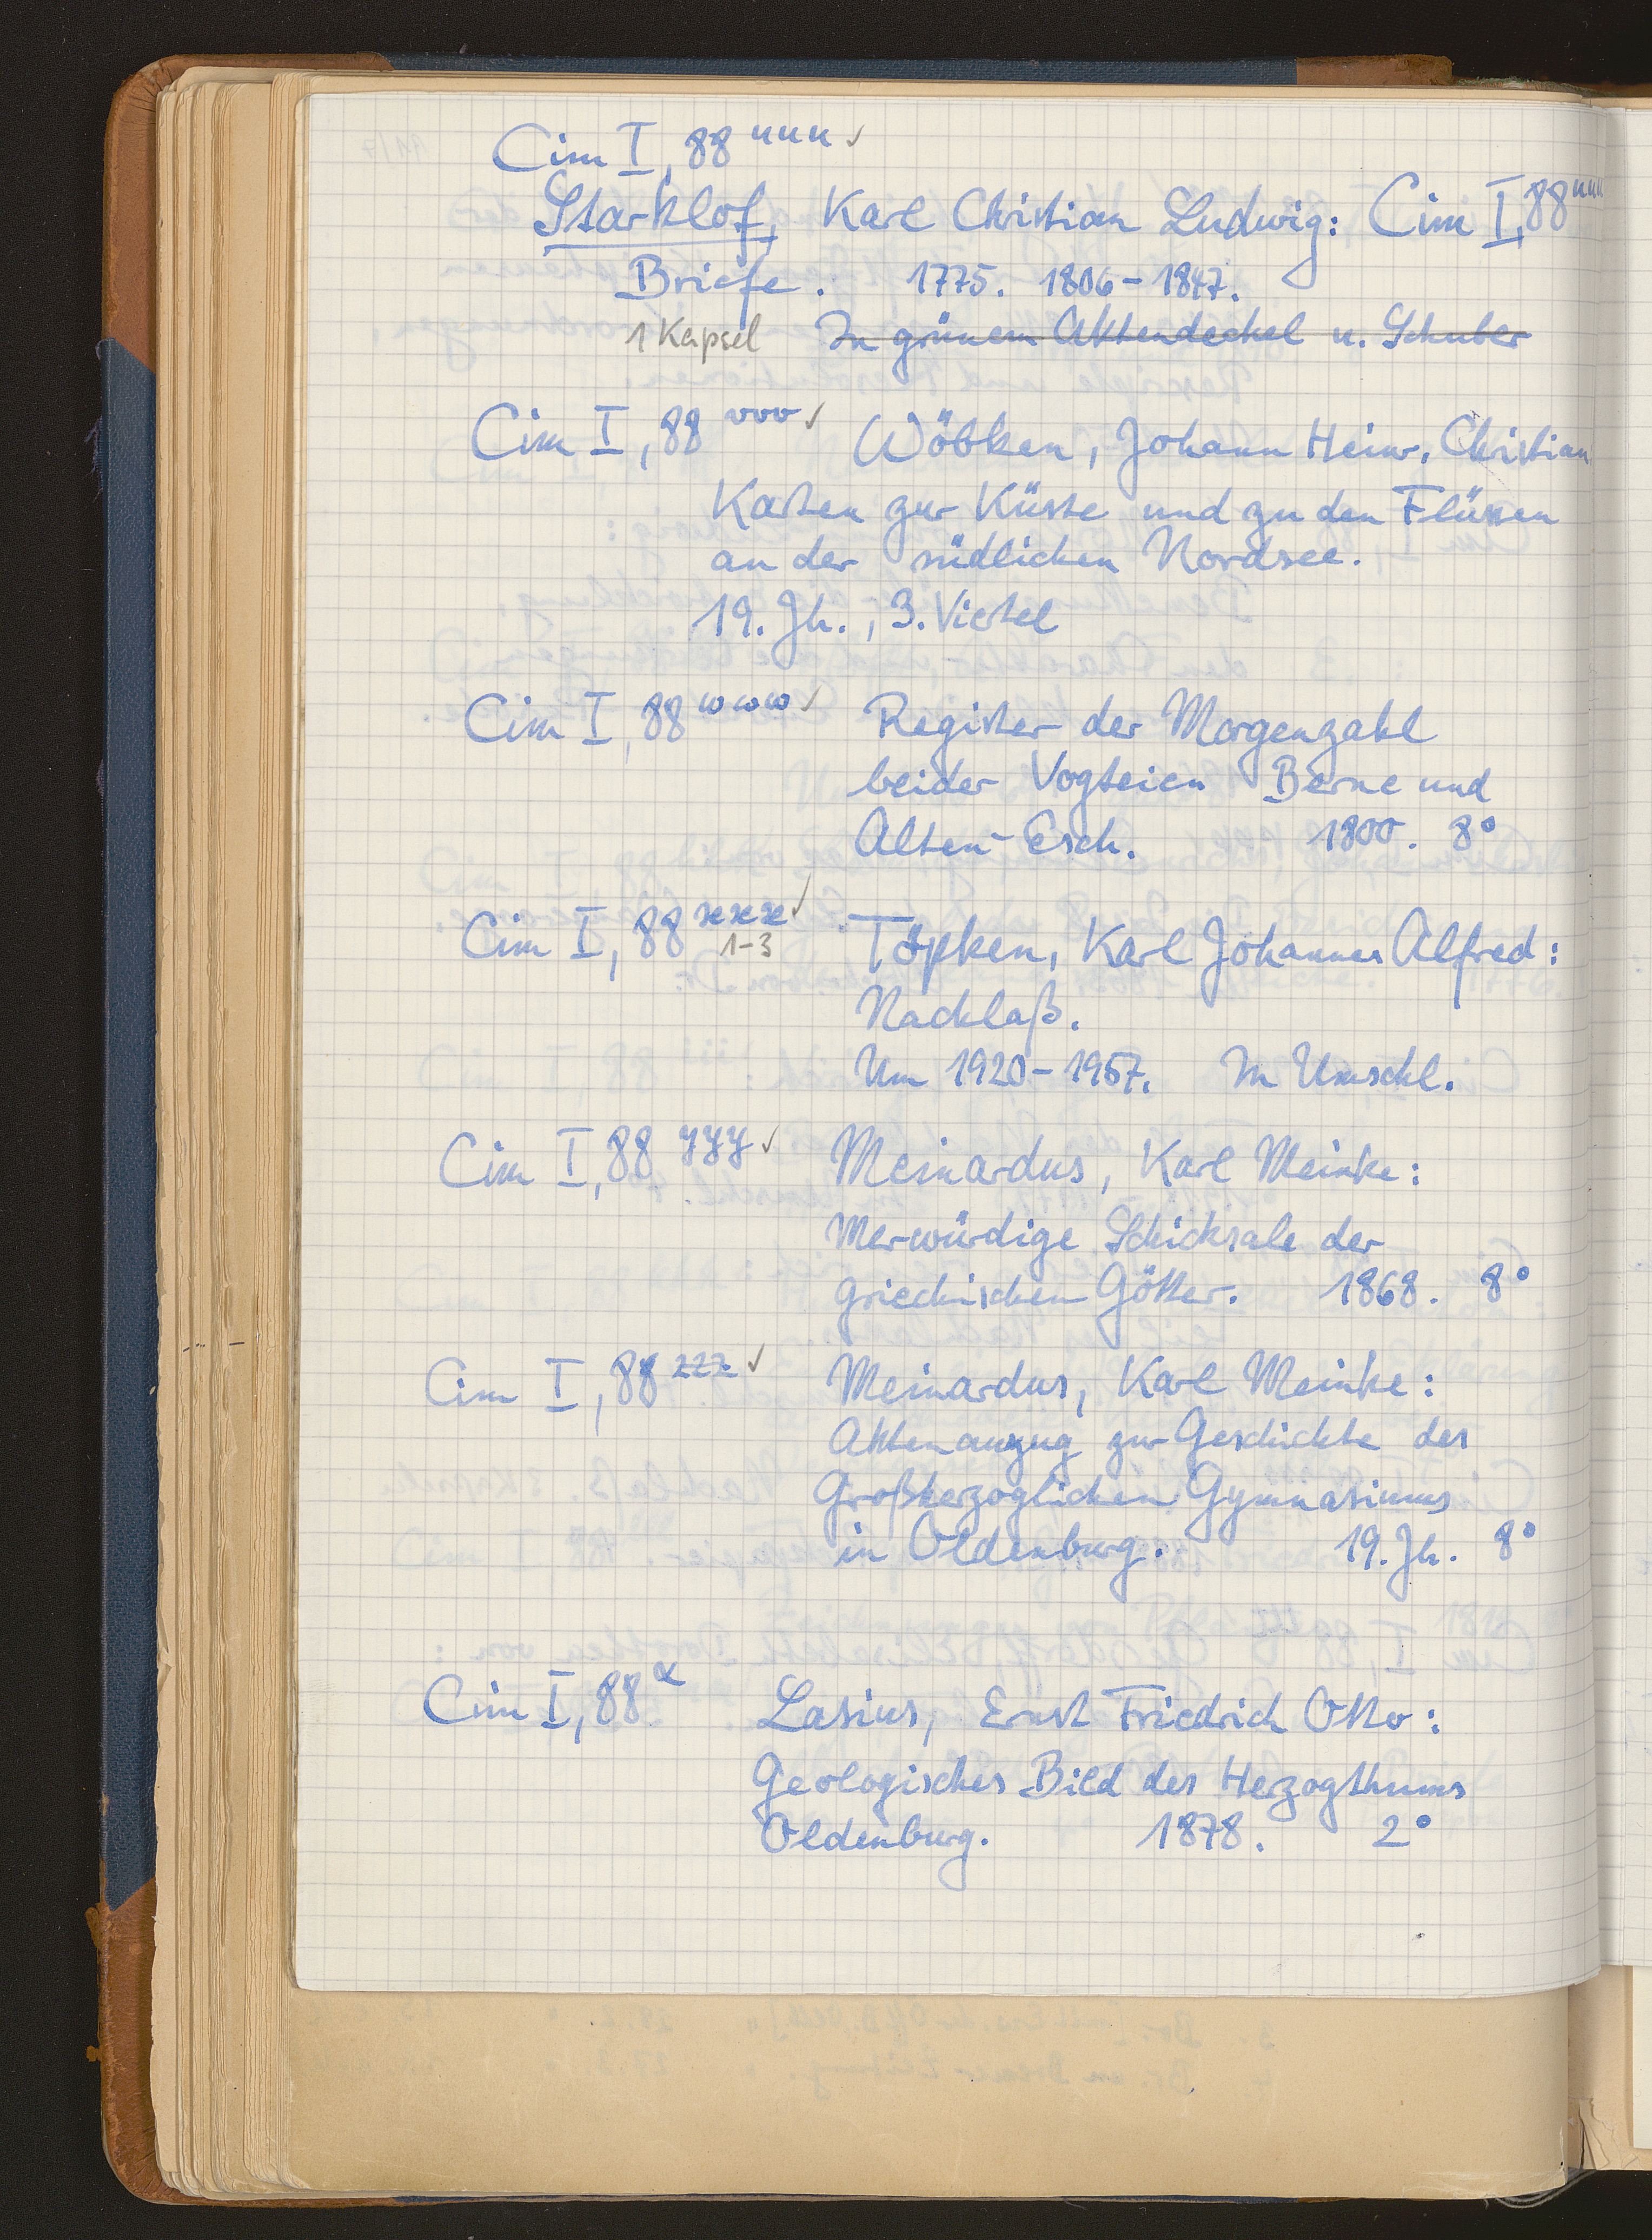 Cim I, 88 uuu ✓
Starklof, Karl Christian Ludwig: Cim I, 88 uuu
Briefe. 1775. 1806-1847.
1 Kapsel In grünem Aktendeckel u. Schuber
Cim I, 88 vvv ✓ Wöbken, Johann Heinr. Christian
Karten zur Küste und zu den Flüssen
an der südlichen Nordsee.
19. Jh., 3. Viertel
Cim I, 88 www ✓ Register der Morgenzahl
beider Vogteien Berne und
Alten-Esch. 1800. 8°
Cim I, 88 xxx ✓ 1-3 Töpken, Karl Johannes Alfred:
Nachlaß.
Um 1920-1967. In Umschl.
Cim I, 88 yyy ✓ Meinardus, Karl Meinke:
Merwürdige Schicksale der
griechischen Götter. 1868. 8°
Cim I, 88 zzz ✓ Meinardus, Karl Meinke:
Aktenauszug zur Geschichte des
Großherzoglichen Gymnasiums
in Oldenburg. 19. Jh. 8°
Cim I, 88 α Lasius, Ernst Friedrich Otto:
Geologisches Bild des Herzogthums
Oldenburg. 1878. 2°